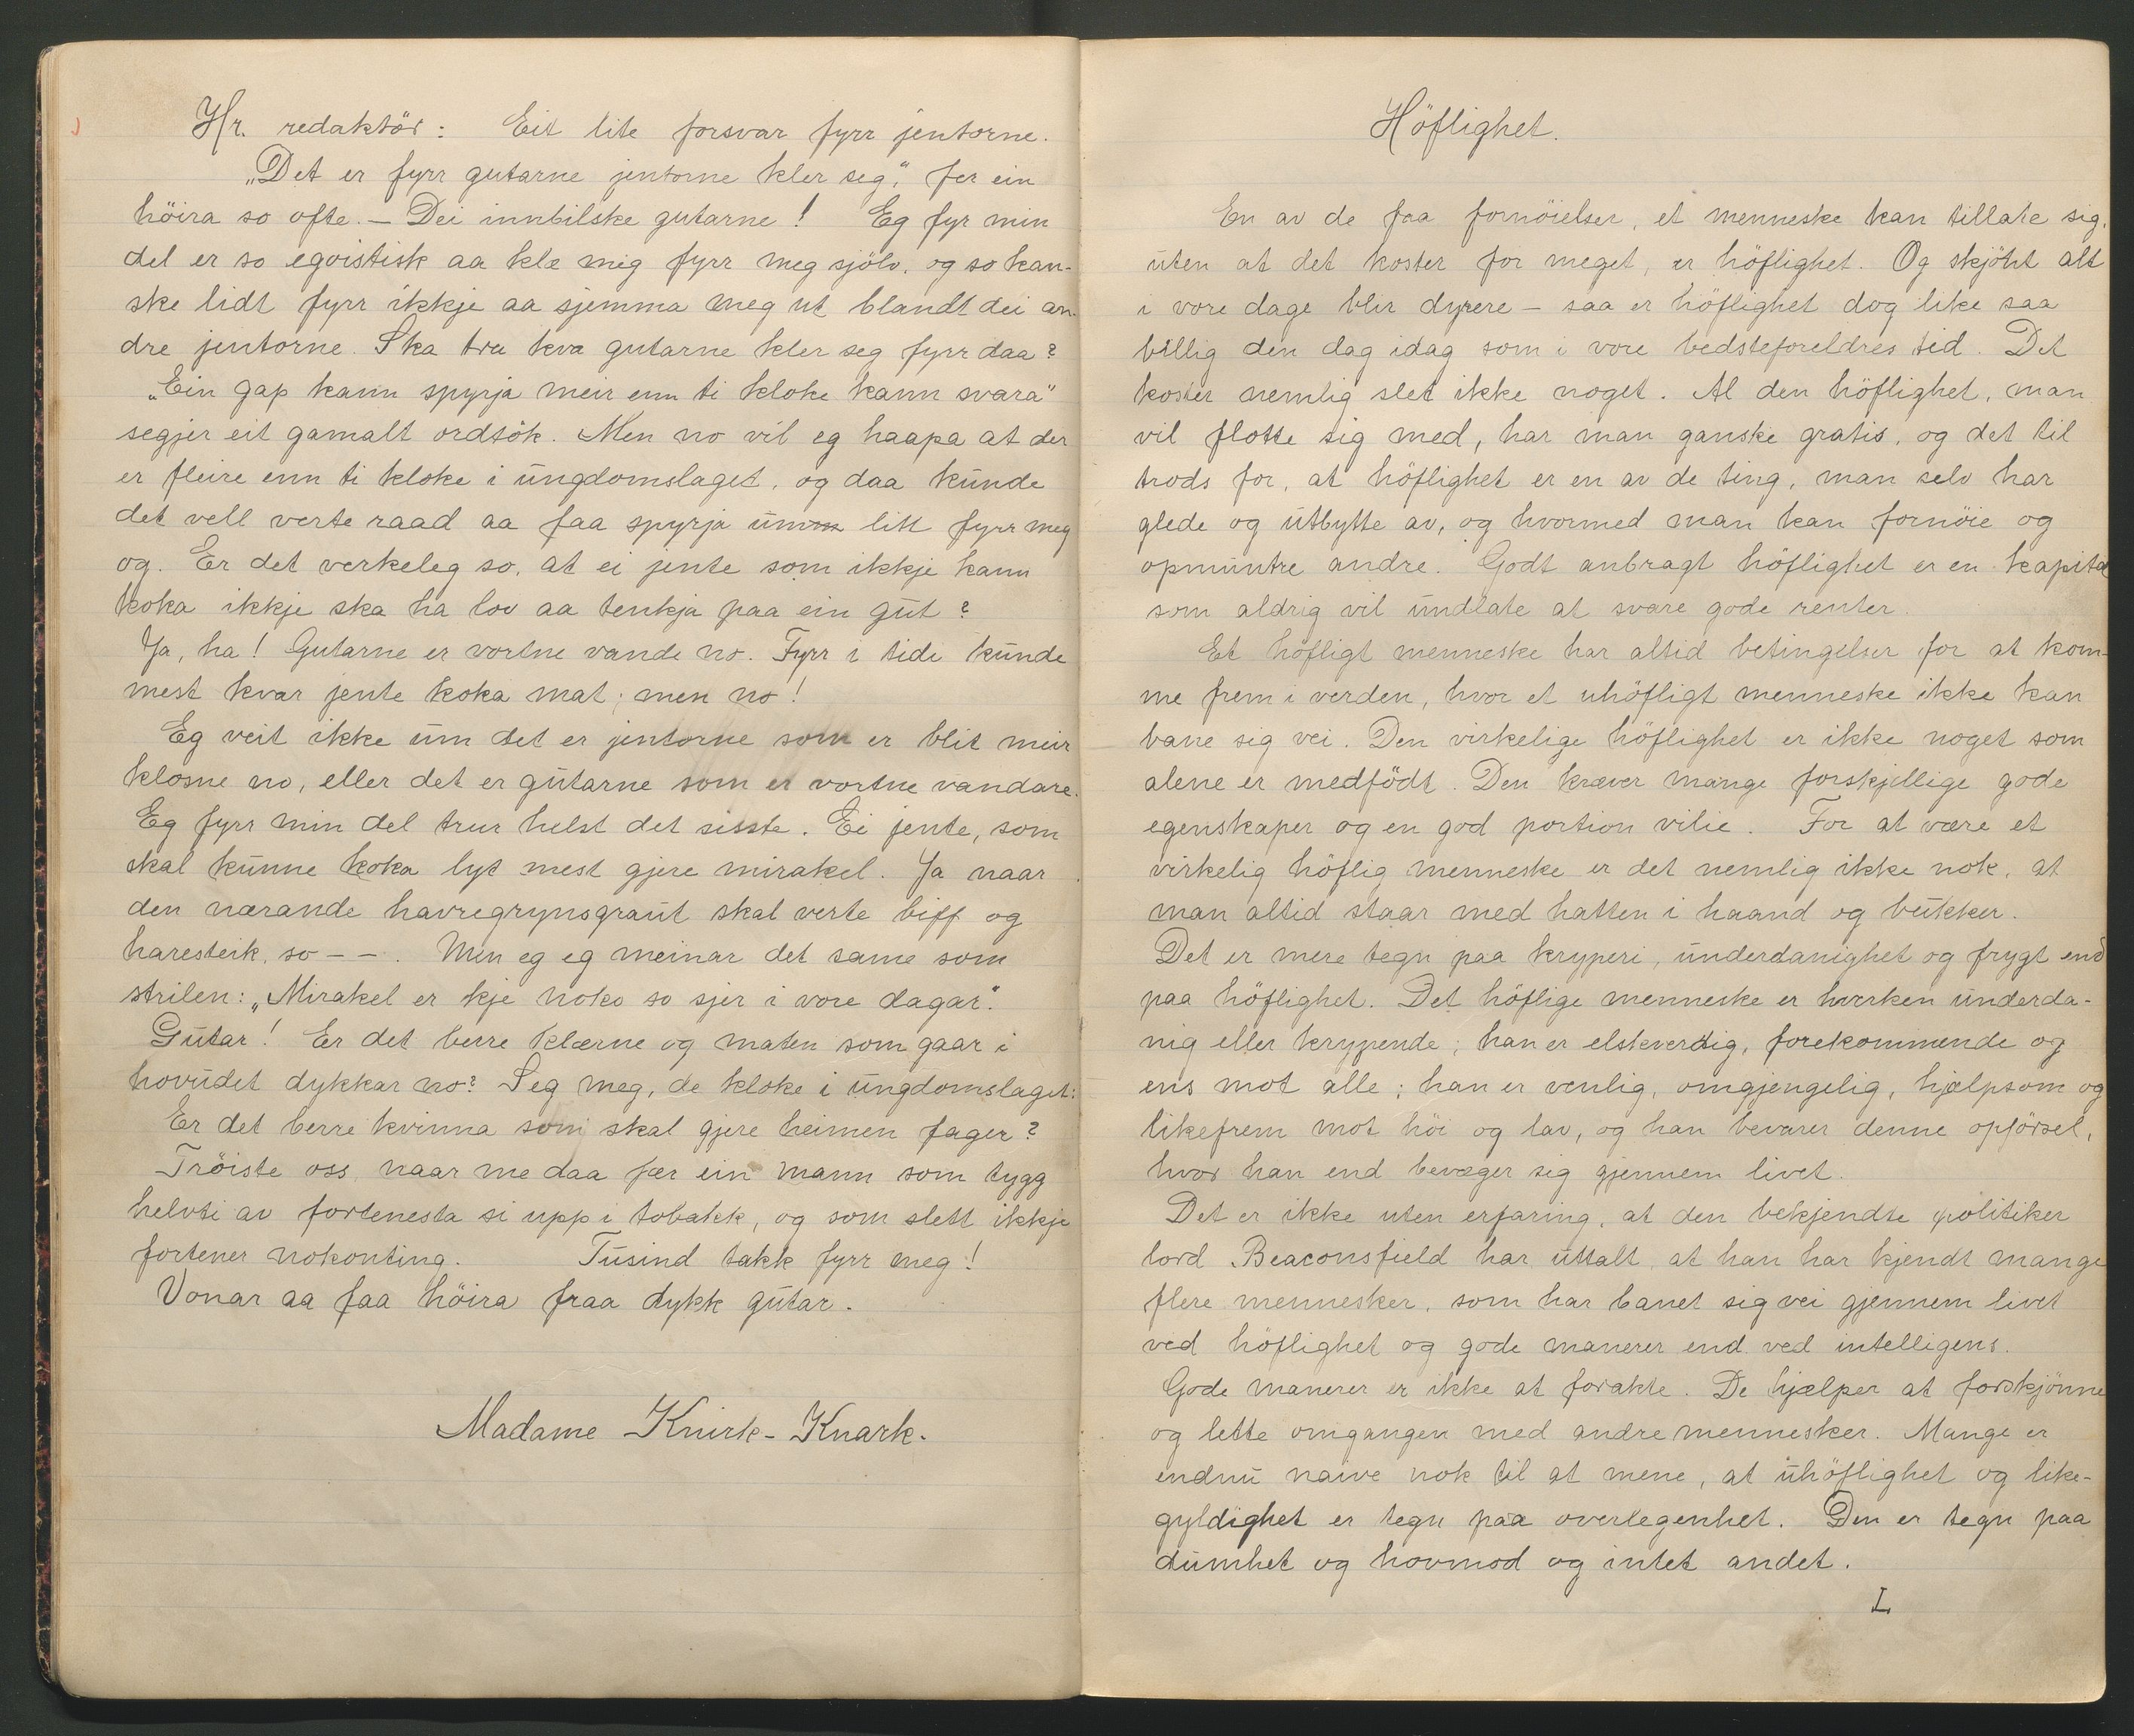 Hr. redaktör: Eit lite forsvar fyrr jentorne.
„Det er fyrr gutarne jentorne kler seg", fer ein
höira so ofte. — Dei innbilske gutarne! Eg fyr min
del er so egoistisk aa kle mig fyrr meg sjölv, og so kan-
ske lidt fyrr ikkje aa sjemma meg ut blandt dei an-
dre jentorne. Ska tru kva gutarne kler seg fyrr daa?
„Ein gap kann spyrja meir enn ti kloke kann svara"
segjer eit gamalt ordtök. Men no vil eg haapa at der
er fleire enn ti kloke i ungdomslaget, og daa kunde
det vell verte raad aa faa spyrja um litt fyrr meg
og. Er det verkeleg so, at ei jente som ikkje kann
koka ikkje ska ha lov aa tenkja paa ein gut?
Ja, ha! Gutarne er vortne vande no. Fyrr i tidi kunde
mest kvar jente koka mat; men no!
Eg veit ikke um det er jentorne som er blit meir
klosne no, eller det er gutarne som er vortne vandare.
Eg fyrr min del trur helst det sisste. Ei jente, som
skal kunne koka lyt mest gjere mirakel. Ja naar
den nærande havregrynsgraut skal verte biff og
haresteik, so - - . Men eg eg meinar det same som
strilen: „Mirakel er kje noko so sjer i vore dagar".
Gutar! Er det berre klærne og maten som gaar i
hovudet dykkar no? Seg meg, de kloke i ungdomslaget:
Er det berre kvinna som skal gjere heimen fager?
Tröiste oss, naar me daa fær ein mann som tygg
helvti av fortenesta si upp i tobakk, og som slett ikkje
fortener nokonting. Tusind takk fyrr meg!
Vonar aa faa höira fraa dykk gutar.
Madame Knirk-Knark.
Höflighet.
En av de faa fornöielser, et menneske kan tillate sig,
uten at det koster for meget, er höflighet. Og skjöht alt
i vore dage blir dyrere — saa er höflighet dog like saa
billig den dag idag som i vore bedsteforeldres tid. Det
koster nemlig slet ikke noget. Al den höflighet, man
vil flotte sig med, har man ganske gratis, og det til
trods for, at höflighet er en av de ting, man selv har
glede og utbytte av, og hvormed man kan fornöie og
opmuntre andre. Godt anbragt höflighet er en kapital
som aldrig vil undlate at svare gode renter.
Et höfligt menneske har altid betingelser for at kom-
me frem i verden, hvor et uhöfligt menneske ikke kan
bane sig vei. Den virkelige höflighet er ikke noget som
alene er medfödt. Den kræver mange forskjellige gode
egenskaper og en god portion vilie. For at være et
virkelig höflig menneske er det nemlig ikke nok, at
man altid staar med hatten i haand og bukker.
Det er mere tegn paa kryperi, underdanighet og frygt end
paa höflighet. Det höflige menneske er hverken underda-
nig eller krypende; han er elskverdig, forekommende og
ens mot alle; han er venlig, omgjengelig, hjælpsom og
likefrem mot höi og lav, og han bevarer denne opförsel,
hvor han end bevæger sig gjennem livet.
Det er ikke uten erfaring, at den bekjendte politiker
lord Beaconsfield har uttalt, at han har kjendt mange
flere mennesker, som har banet sig vei gjennem livet
ved höflighet og gode manerer end ved intelligens.
Gode manerer er ikke at forakte. De hjælper at forskjönne
og lette omgangen med andre mennesker. Mange er
endnu naive nok til at mene, at uhöflighet og like-
gyldighet er tegn paa overlegenhet. Den er tegn paa
dumhet og hovmod og intet andet.
L